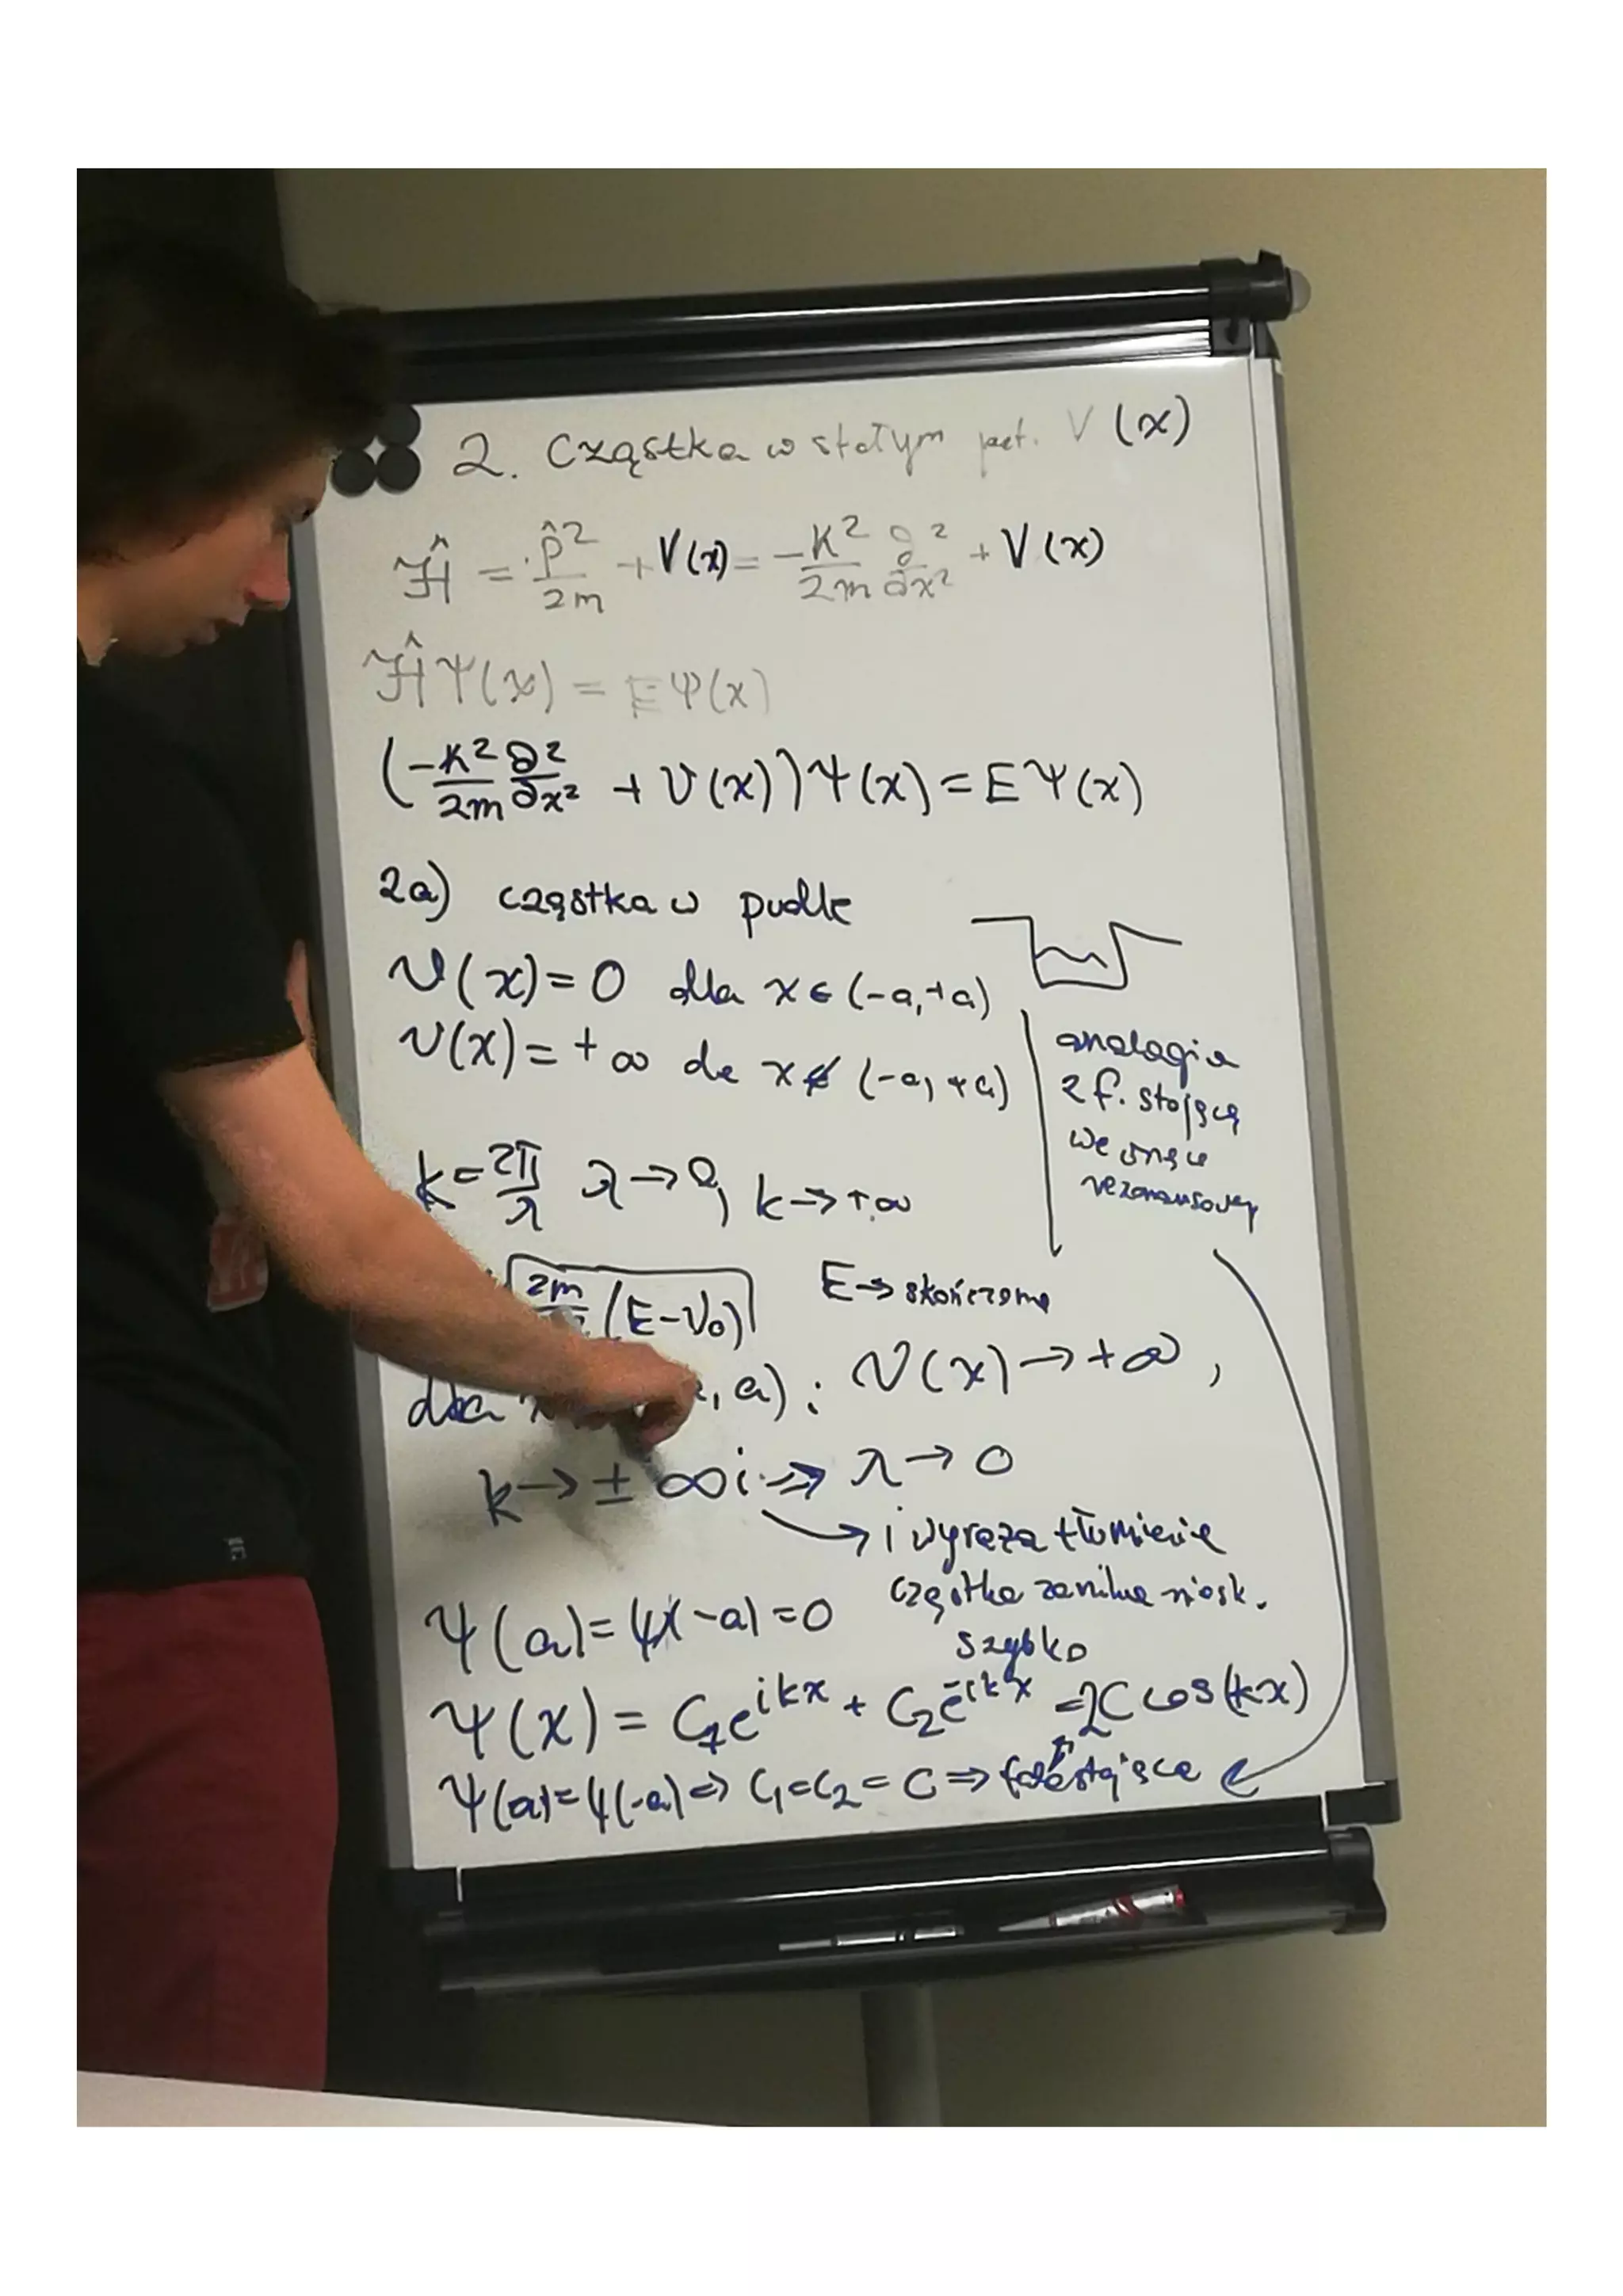 2. Cząstka w stałym pot. V (x)
Ĥ = p̂²/2m + V(x) = -ħ²/2m ∂²/∂x² + V(x)
Ĥ Ψ(x) = E Ψ(x)
(-ħ²/2m ∂²/∂x² + V(x)) Ψ(x) = E Ψ(x)
2a) cząstka w pudle
V(x) = 0 dla x ∈ (-a, +a)
V(x) = +∞ dla x ∉ (-a, +a)
analogia
z f. stojącą
we wnęce
rezonansowej
k = 2π/λ λ → 0, k → +∞
2m (E - V0)
E → skończone
dla x , a) : V(x) → +∞ ,
k → ± ∞i ⇒ λ → 0
→ i wyraża tłumienie
cząstka zanika niesk.
szybko
Ψ(a) = Ψ(-a) = 0
Ψ(x) = C₁e^{ikx} + C₂e^{-ikx} = 2C cos(kx)
Ψ(a) = Ψ(-a) ⇒ C₁ = C₂ = C ⇒ fale stojące